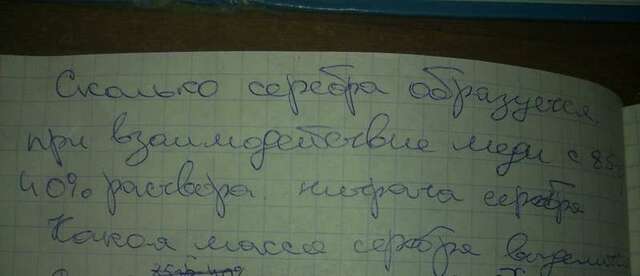 Сколько серебра образуется
при взаимодействие меди с 85
40% раствора нитрата серебра
Какая масса серебра